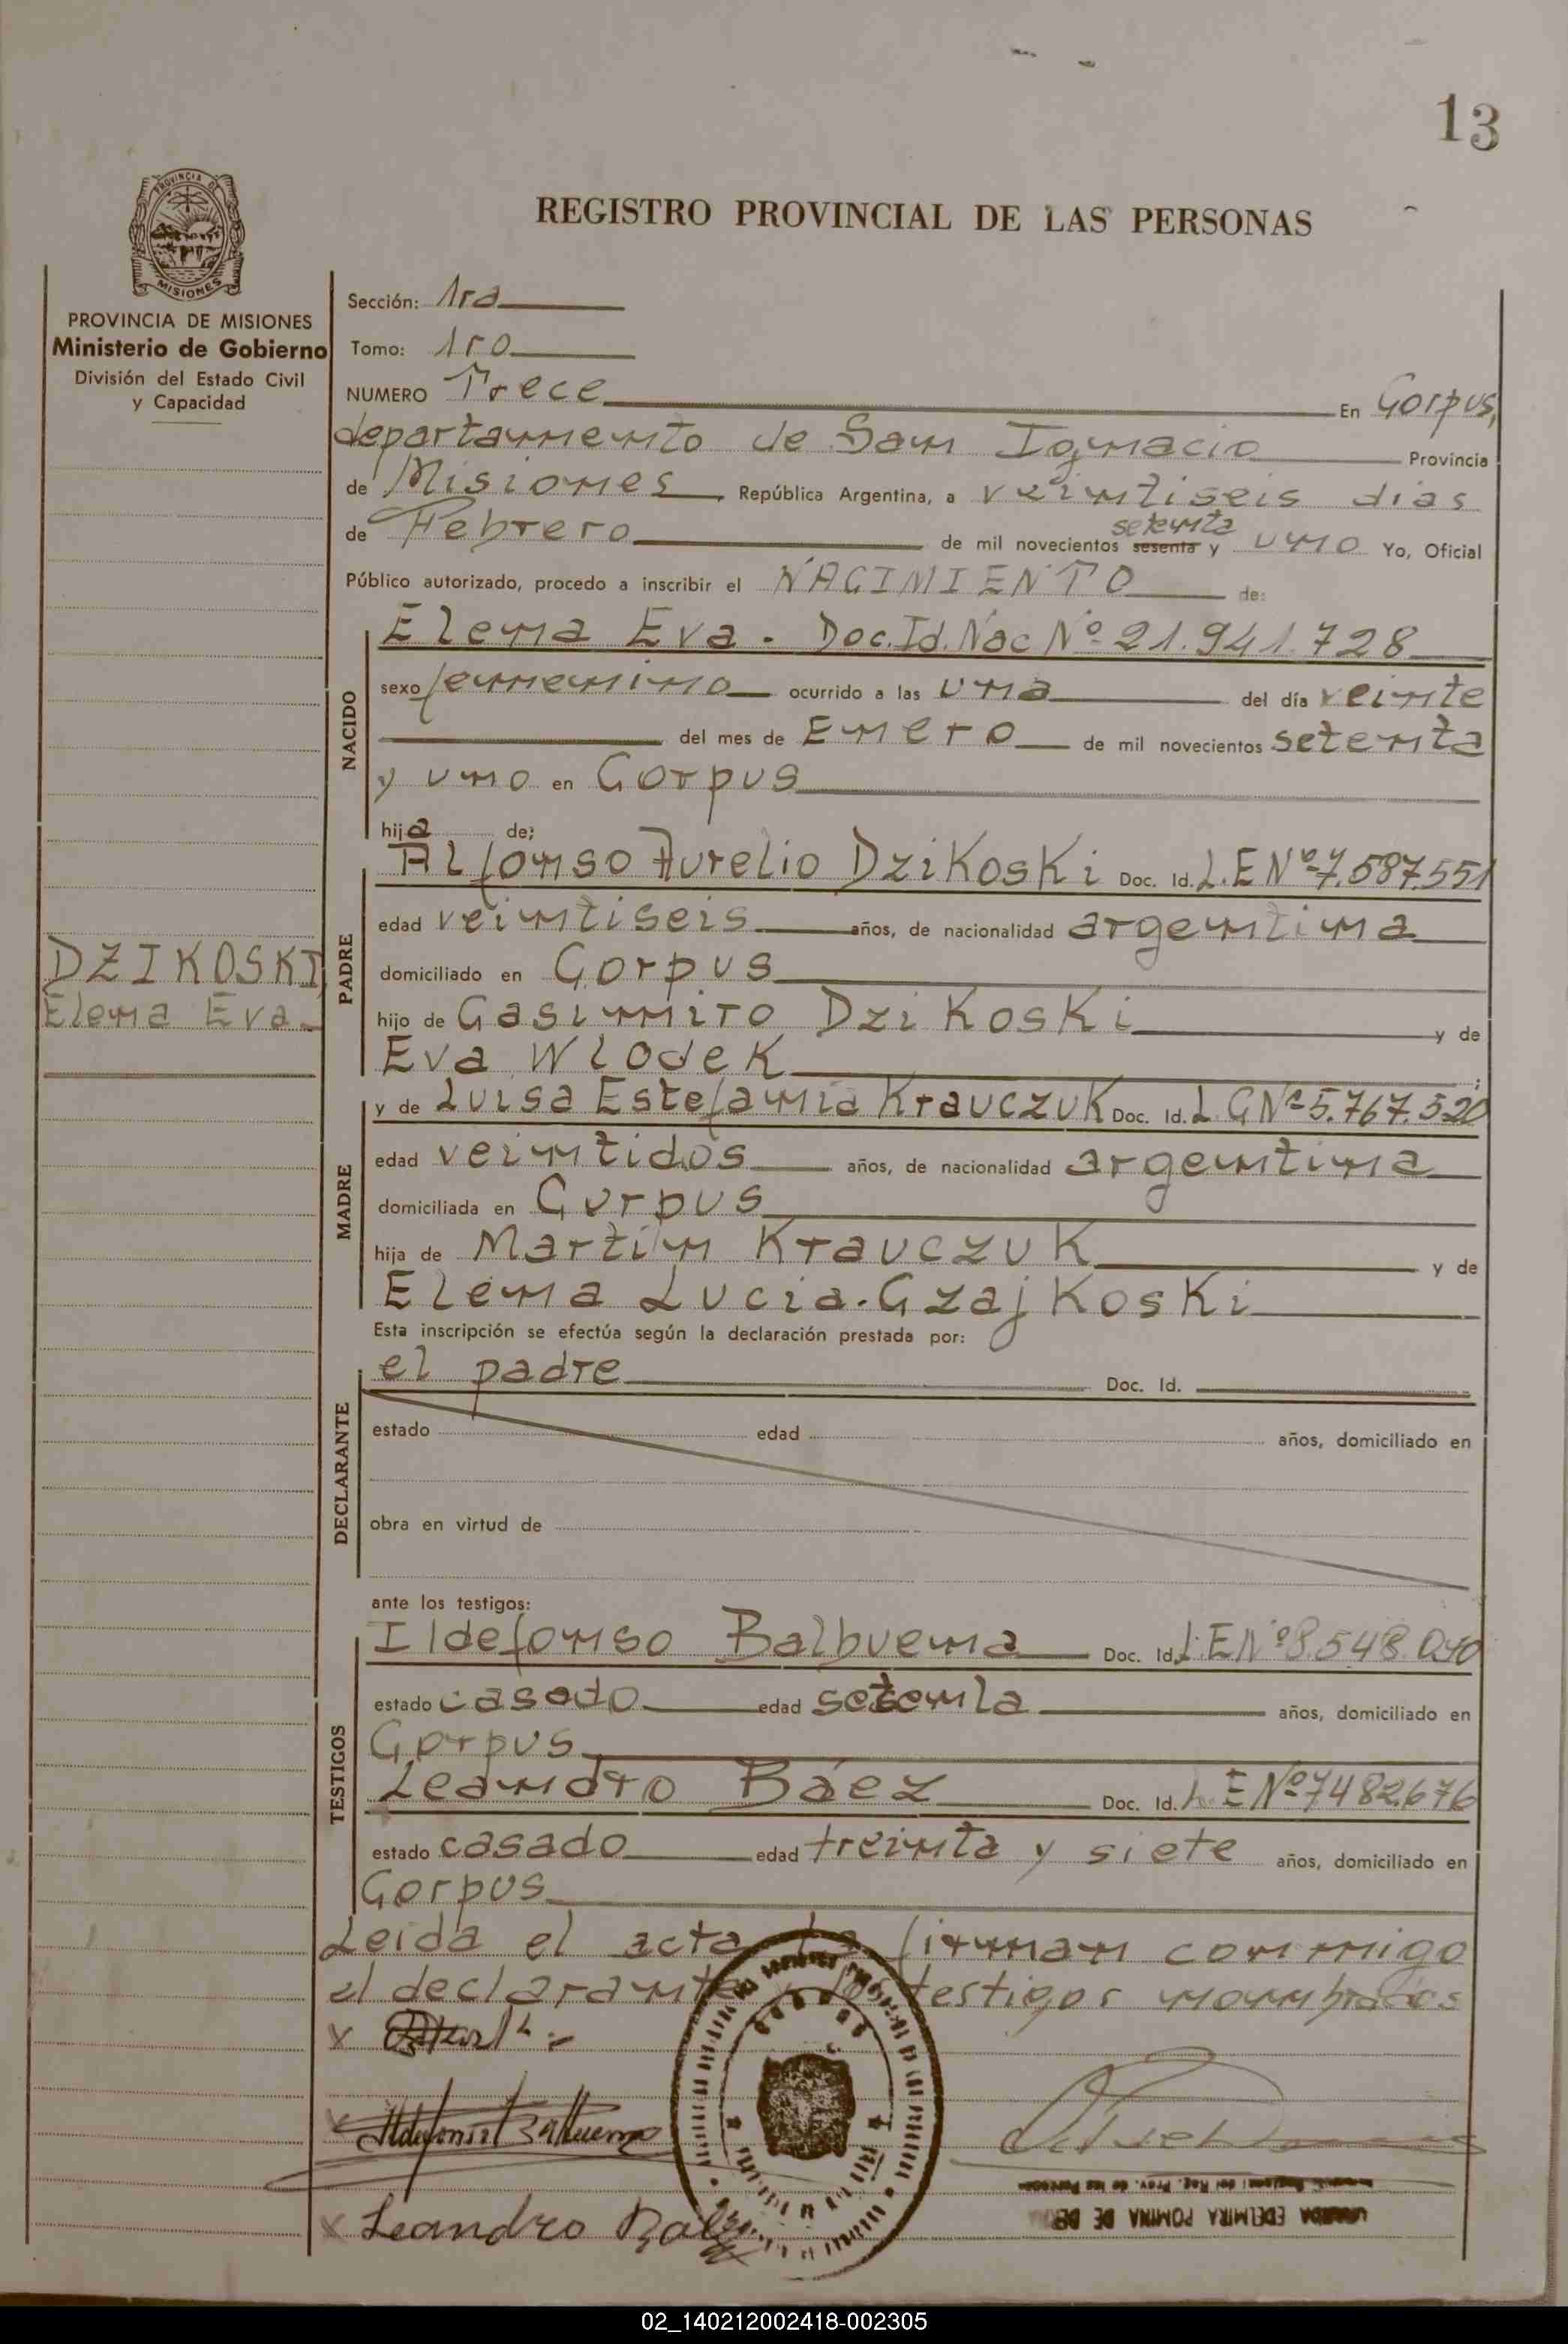 13
PROVINCIA DE
MISIONES
REGISTRO PROVINCIAL DE LAS PERSONAS
PROVINCIA DE MISIONES
Ministerio de Gobierno
División del Estado Civil
y Capacidad
DZIKOSKI,
Elena Eva
Sección: 1ra
Tomo: 1ro
NUMERO Trece En Corpus,
departamento de San Ignacio Provincia
de Misiones República Argentina, a veintiseis dias
setenta
de Febrero de mil novecientos sesenta y uno Yo, Oficial
Público autorizado, procedo a inscribir el NACIMIENTO de:
NACIDO
Elena Eva - Doc. Id. Nac Nº 21.941.728
sexo femenino ocurrido a las una del día veinte
del mes de Enero de mil novecientos setenta
y uno en Corpus
hija de:
PADRE
Alfonso Aurelio Dzikoski Doc. Id. L.E Nº 7.587.551
edad veintiseis años, de nacionalidad argentina
domiciliado en Corpus
hijo de Casimiro Dzikoski y de
Eva Wlodek ;
MADRE
y de Luisa Estefania Krauczuk Doc. Id. L C Nº 5.767.520
edad veintidos años, de nacionalidad argentina
domiciliada en Corpus
hija de Martin Krauczuk y de
Elena Lucia Czajkoski
Esta inscripción se efectúa según la declaración prestada por:
DECLARANTE
el padre Doc. Id.
estado edad años, domiciliado en
obra en virtud de
ante los testigos:
TESTIGOS
Ildefonso Balbuena Doc. Id. L.E Nº 8.548.040
estado casado edad setenta años, domiciliado en
Corpus
Leandro Báez Doc. Id. L.E Nº 7482676
estado casado edad treinta y siete años, domiciliado en
Corpus
Leida el acta la firman conmigo
el declarante y los testigos nombrados
x
x Ildefonso Balbuena
x Leandro Baez
EDELMIRA POMINA DE
02_140212002418-002305